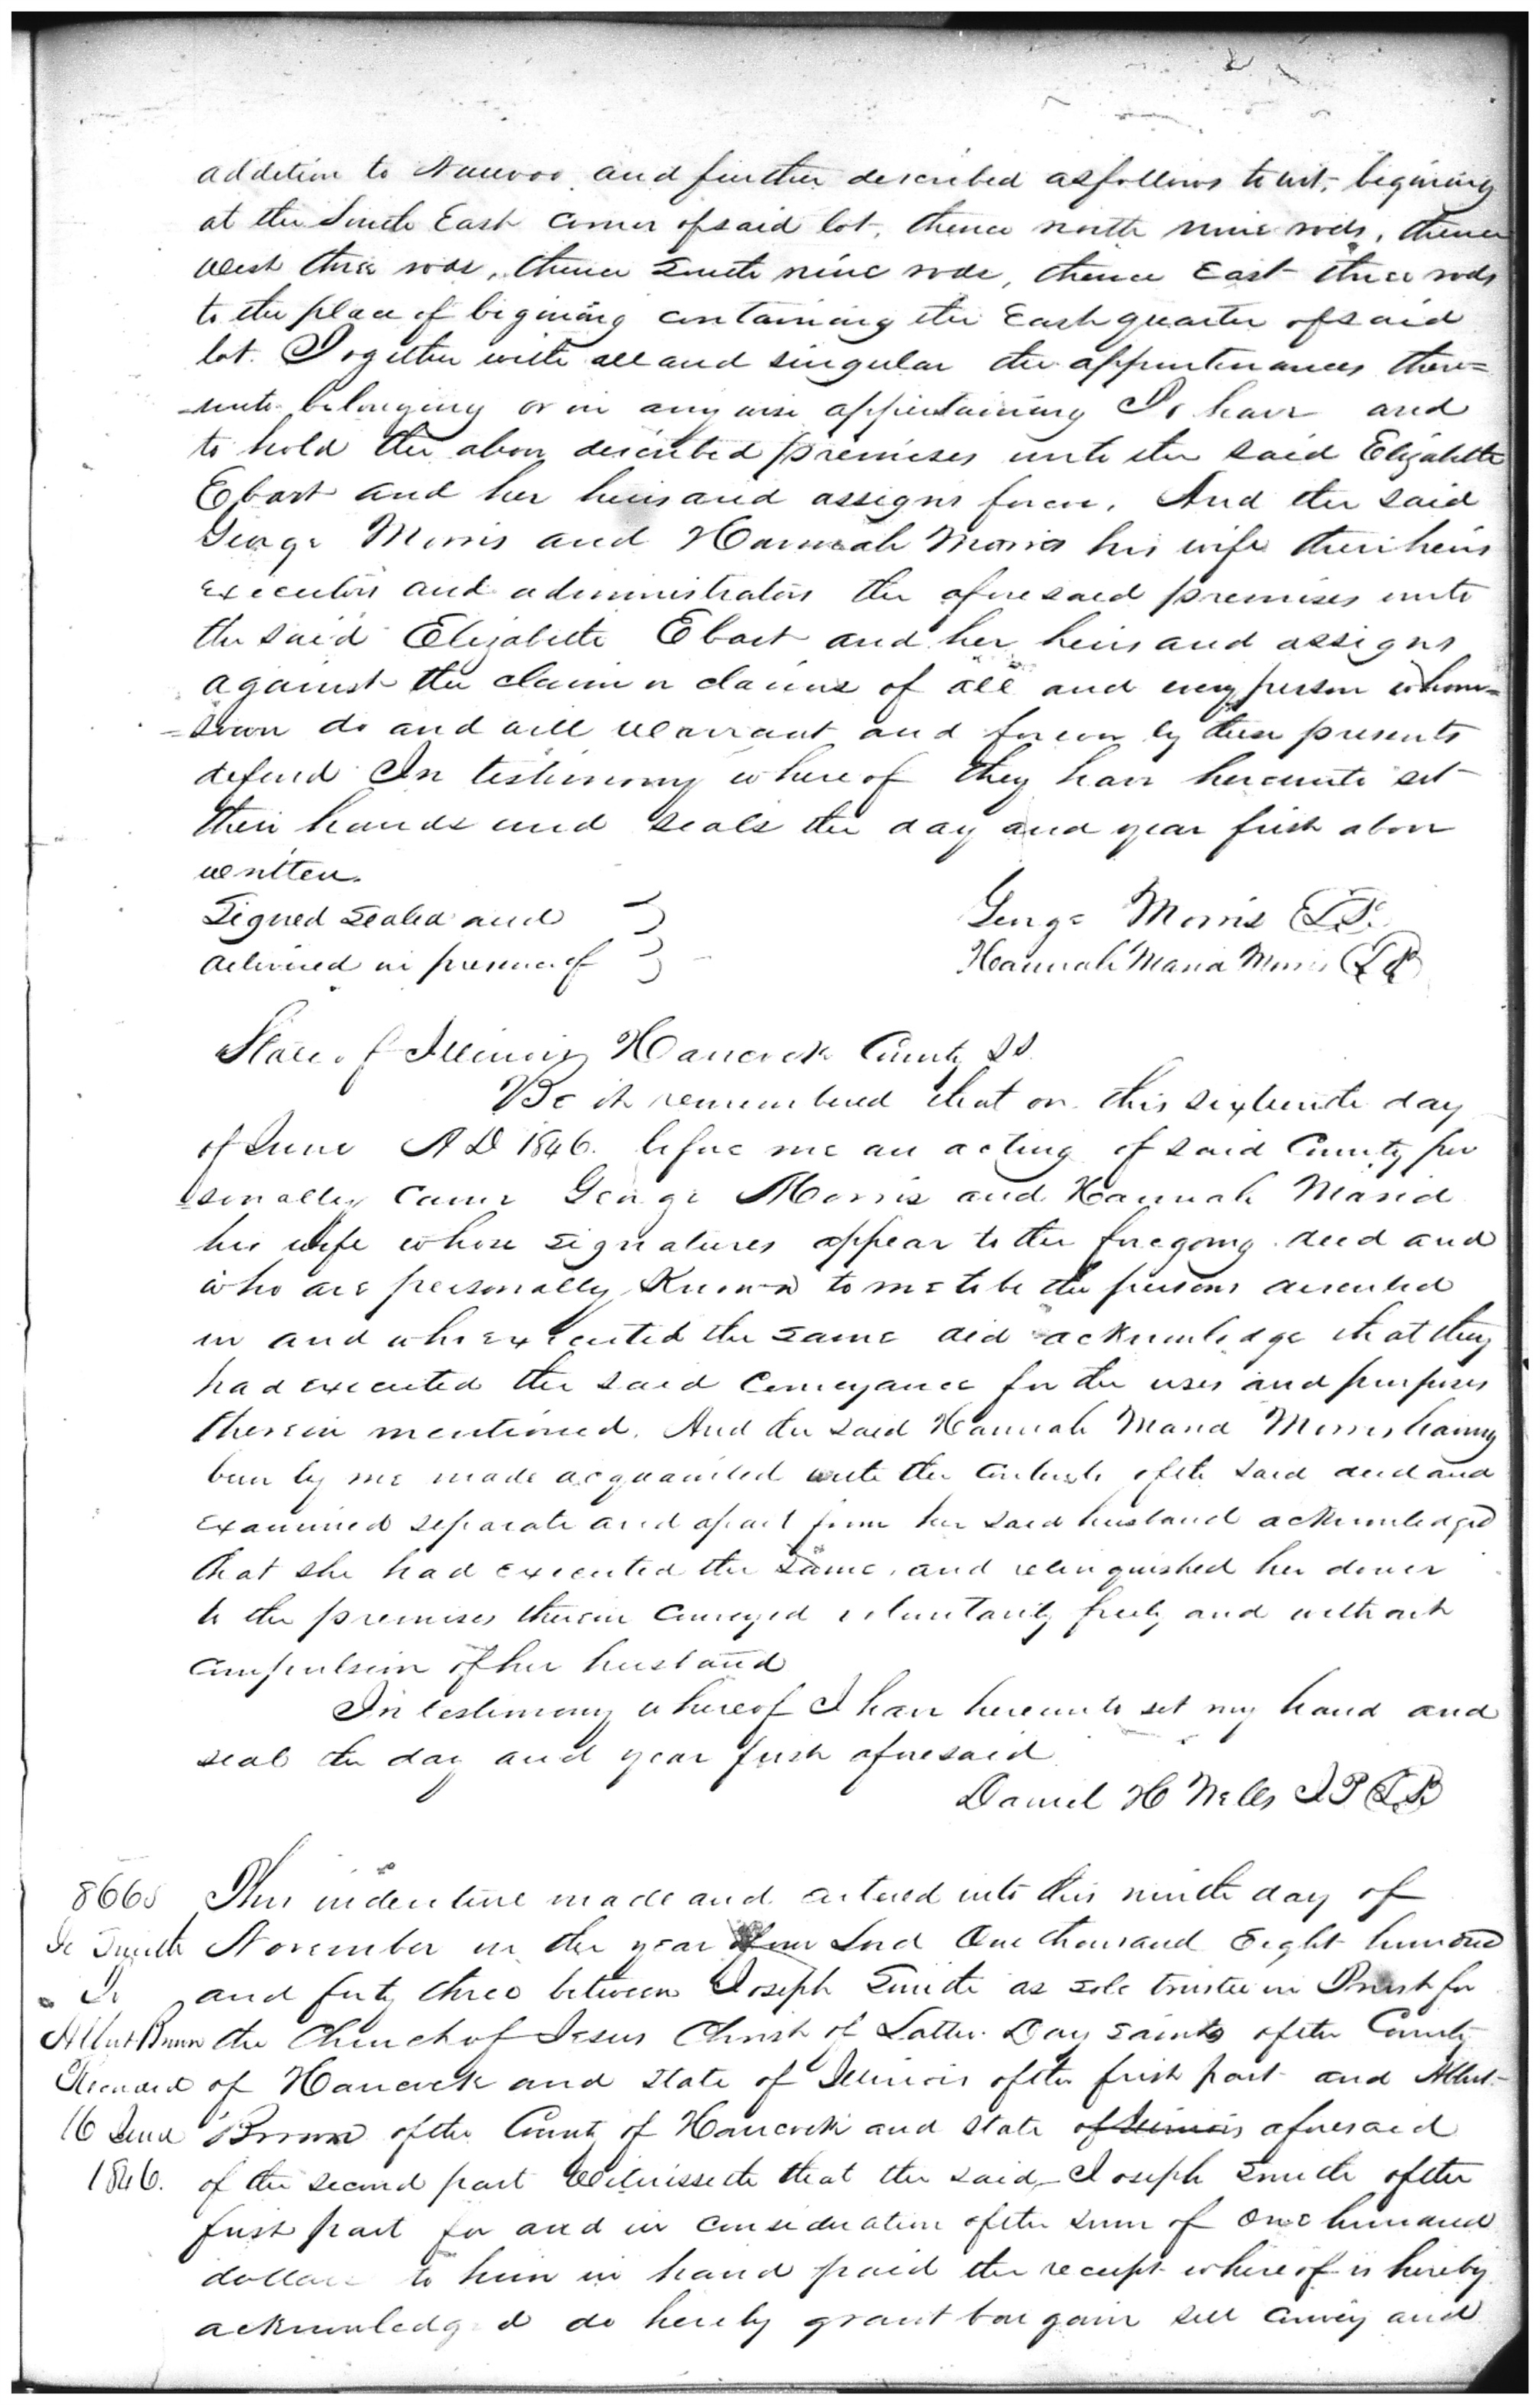 addition to Nauvoo, and further described as follows to wit, begining
at the South East corner of said lot, thence north nine rods, thence
West three rods, thence South nine rods, thence East three rods
to the place of begining containing the East quarter of said
lot. Together with all and singular the appurtenances there=
-unto belonging or in any wise appertaining To have and
to hold the above described premises unto the said Elizabeth
Ebart and her heirs and assigns forever, And the said
George Morris and Hannah Morris his wife their heirs
executors and administrators the aforesaid premises unto
the said Elizabeth Ebart and her heirs and assigns
against the claim or claims of all and every person whom=
=soever do and will warrant and forever by these presents
defend In testimony whereof they have hereunto set
their hands and seals the day and year first above
written.
Signed Sealed and
delivered in presence of
George Morris L.S.
Hannah Maria Morris L.S.
State of Illinois Hancock County SS
Be it remembered that on this sixteenth day
of June A D 1846. before me an acting of said County per
sonally came George Morris and Hannah Maria
his wife whose signatures appear to the foregoing deed and
who are personally Known to me to be the persons described
in and who executed the same did acknowledge that they
had executed the said Conveyance for the uses and purposes
therein mentioned. And the said Hannah Maria Morris having
been by me made acquainted with the contents of the said deed and
examined separate and apart from her said husband acknowledged
that she had executed the same, and relinquished her dower
to the premises therein conveyed voluntarily freely and without
compulsion of her husband
In testimony whereof I have hereunto set my hand and
seal the day and year first aforesaid
Daniel H Wells J P L.S.
8668 This indenture made and entered into this ninth day of
Jo Smith November in the year of our Lord One thousand Eight hundred
To and forty three between Joseph Smith as sole trustee in Trust for
Albert Brown the Church of Jesus Christ of Latter Day Saints of the County
Recorded of Hancock and State of Illinois of the first part and Albert
16 June Brown of the County of Hancock and State of Illinois aforesaid
1846. of the second part Witnesseth that the said Joseph Smith of the
first part for and in consideration of the sum of One hundred
dollars to him in hand paid the receipt whereof is hereby
acknowledged do hereby grant bargain sell convey and